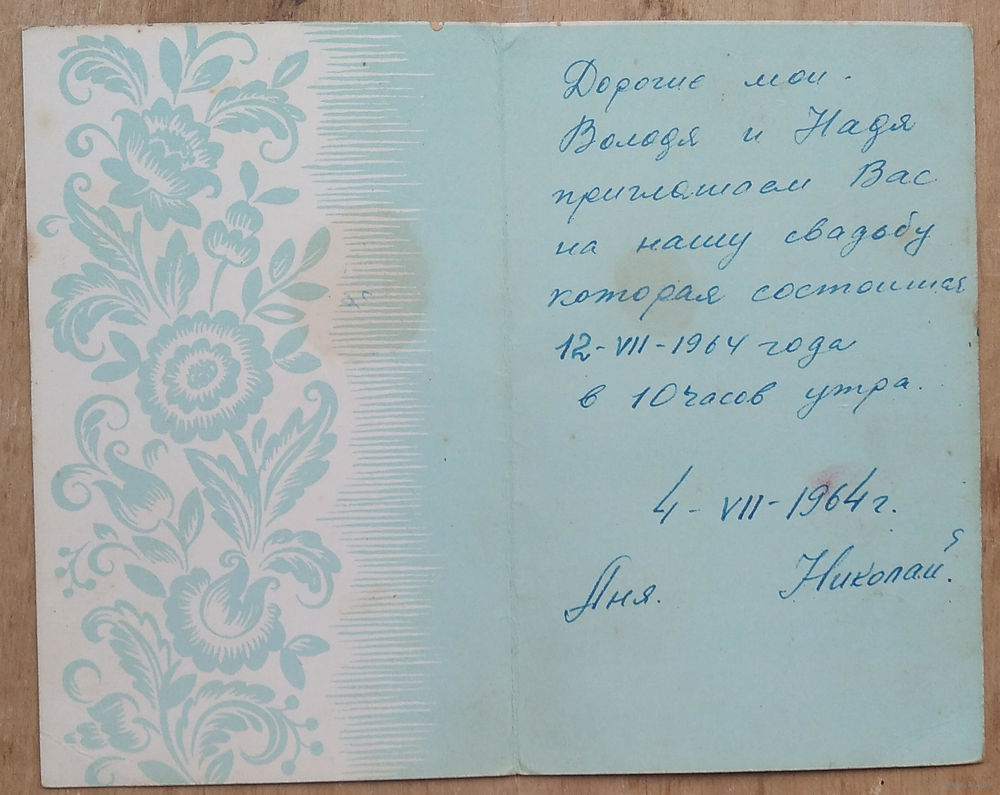 Дорогие мои.
Володя и Надя
приглашаем Вас
на нашу свадьбу
которая состоится
12-VII-1964 года
в 10 часов утра.
4-VII-1964 г.
Аня. Николай.